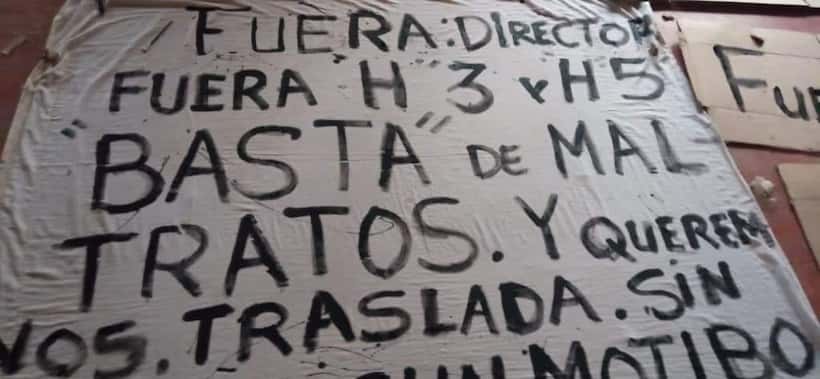 FUERA: DIRECTOR
FUERA "H" 3 Y "H" 5
"BASTA" DE MAL-
TRATOS. Y QUEREM
NOS. TRASLADA. SIN
MOTIBO
FUE